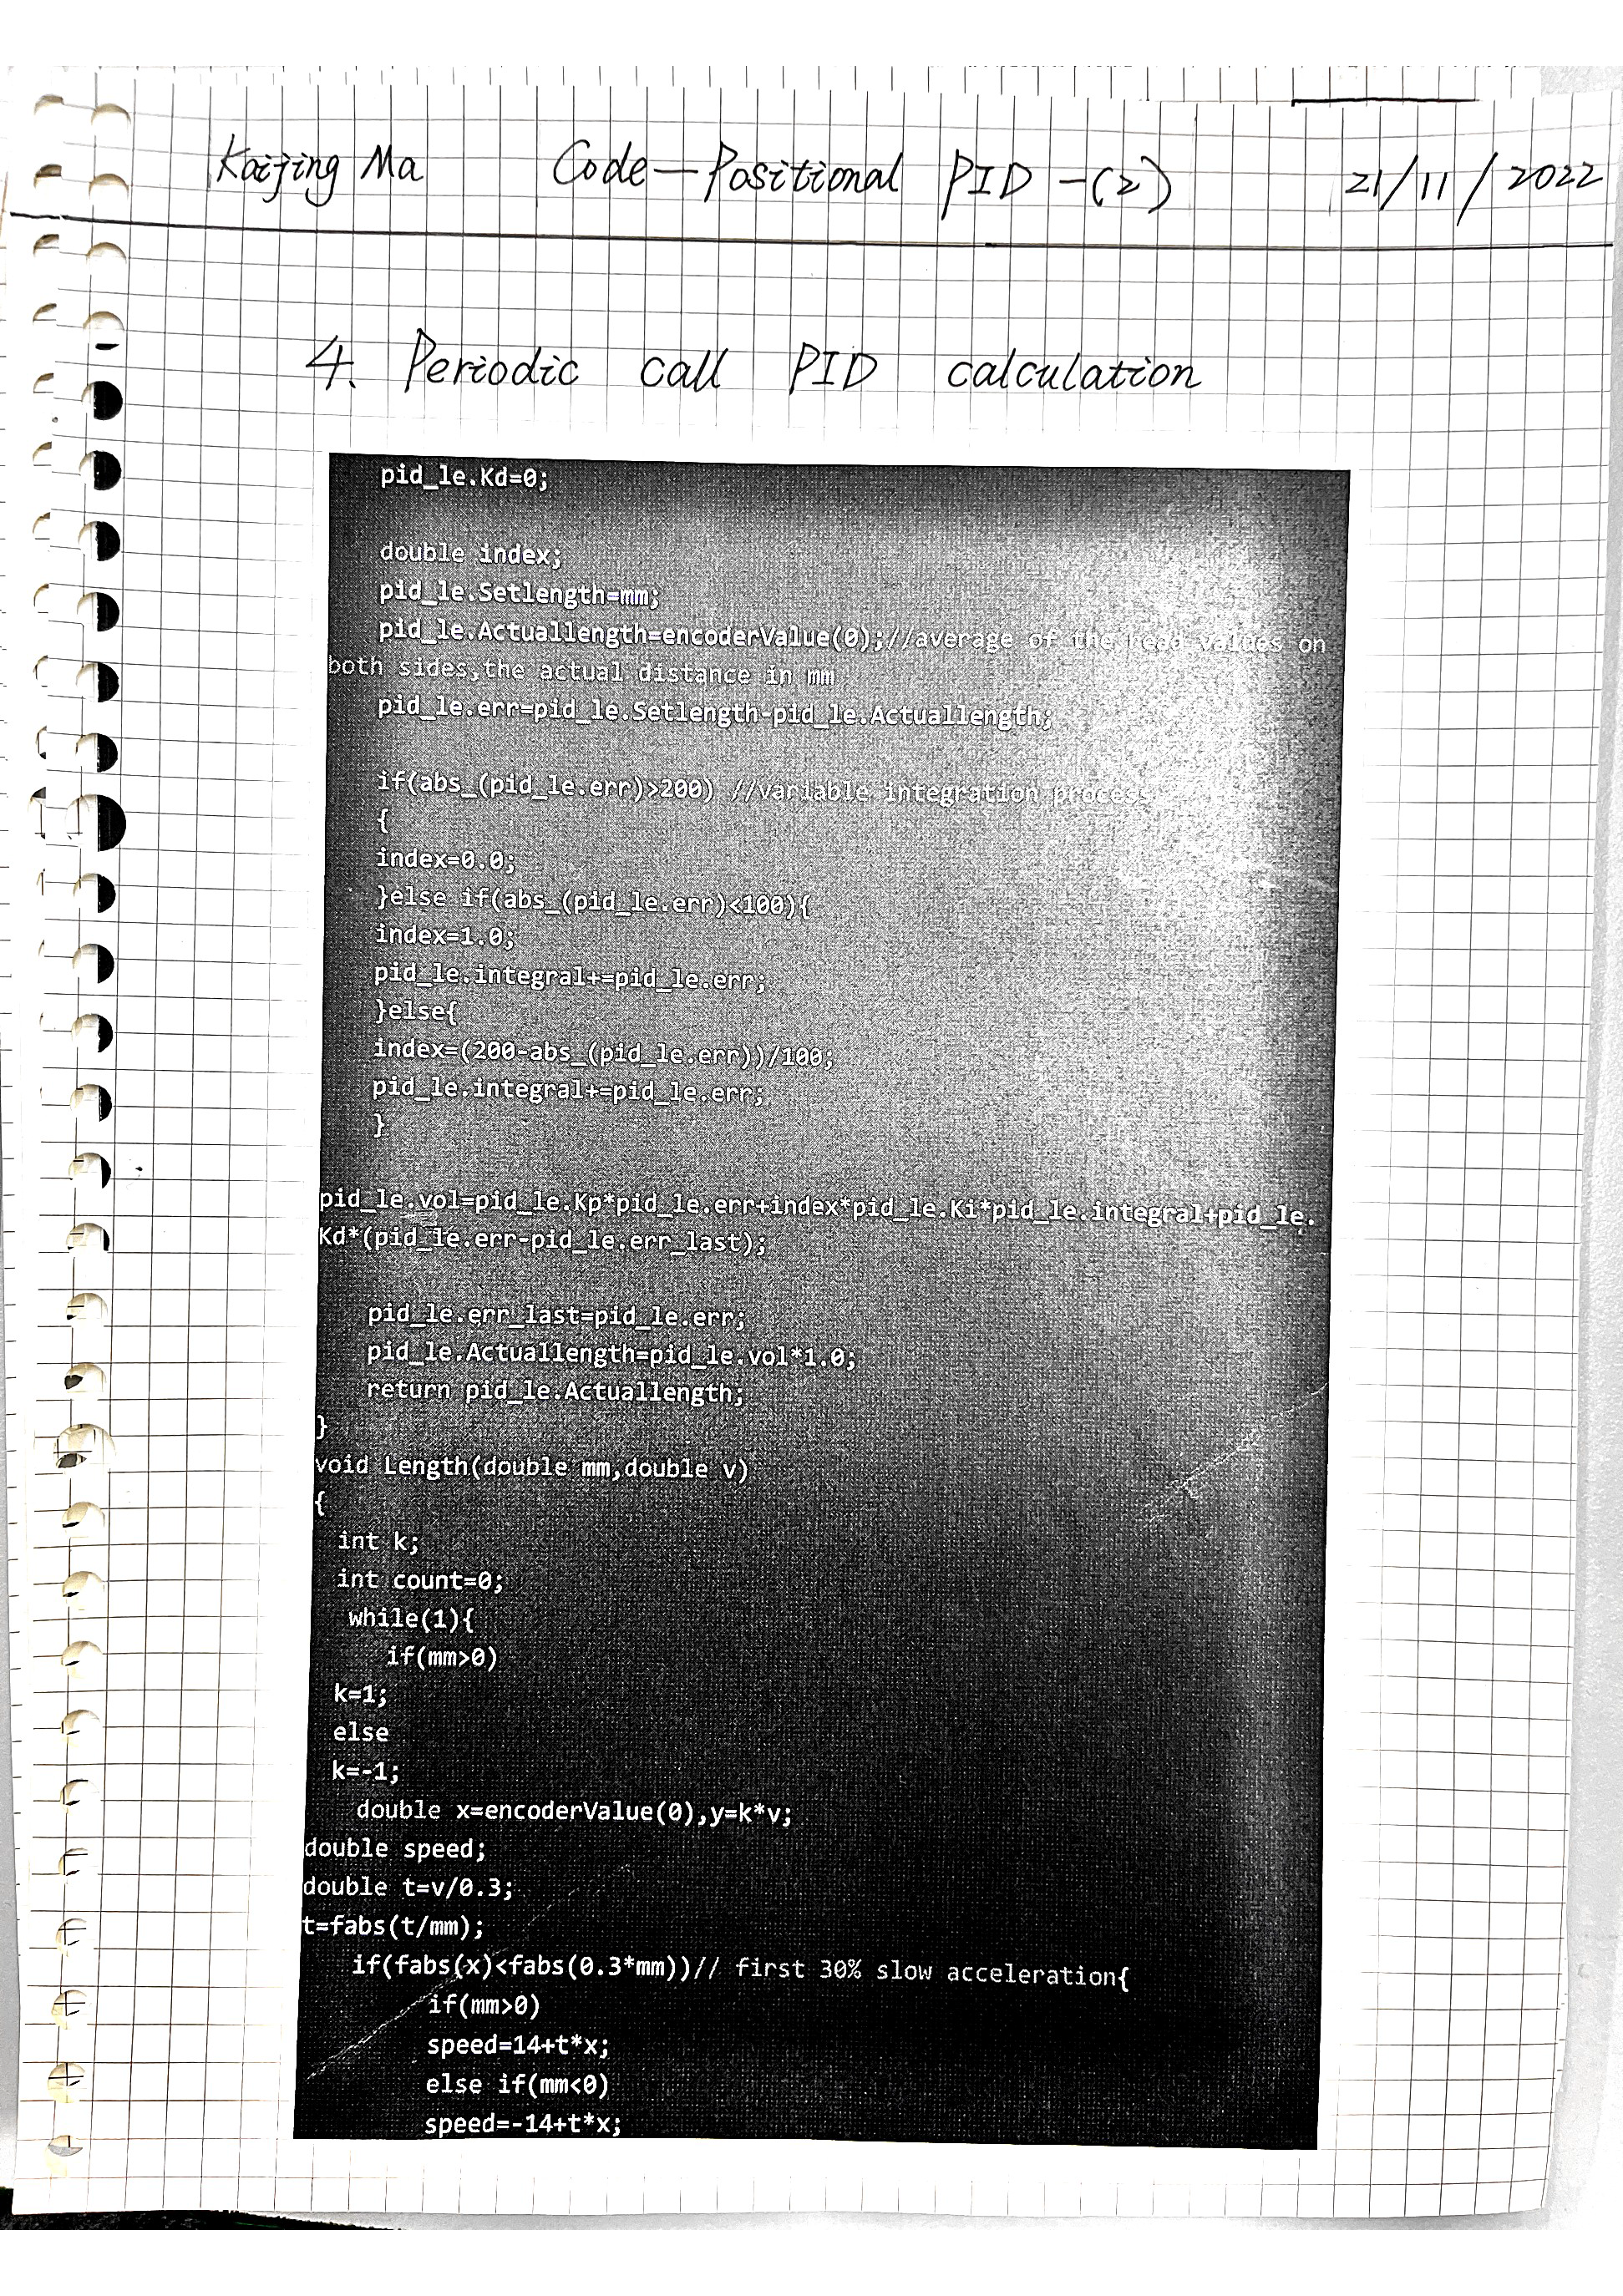 Kaijing Ma Code-Positional PID-(2) 21/11/2022
4. Periodic call PID calculation
pid_le.Kd=0;
double index;
pid_le.Setlength=mm;
pid_le.Actuallength=encoderValue(0);//average of the read values on
both sides,the actual distance in mm
pid_le.err=pid_le.Setlength-pid_le.Actuallength;
if(abs_(pid_le.err)>200) //variable integration process
{
index=0.0;
}else if(abs_(pid_le.err)<100){
index=1.0;
pid_le.integral+=pid_le.err;
}else{
index=(200-abs_(pid_le.err))/100;
pid_le.integral+=pid_le.err;
}
pid_le.vol=pid_le.Kp*pid_le.err+index*pid_le.Ki*pid_le.integral+pid_le.
Kd*(pid_le.err-pid_le.err_last);
pid_le.err_last=pid_le.err;
pid_le.Actuallength=pid_le.vol*1.0;
return pid_le.Actuallength;
}
void Length(double mm,double v)
{
int k;
int count=0;
while(1){
if(mm>0)
k=1;
else
k=-1;
double x=encoderValue(0),y=k*v;
double speed;
double t=v/0.3;
t=fabs(t/mm);
if(fabs(x)<fabs(0.3*mm))// first 30% slow acceleration{
if(mm>0)
speed=14+t*x;
else if(mm<0)
speed=-14+t*x;